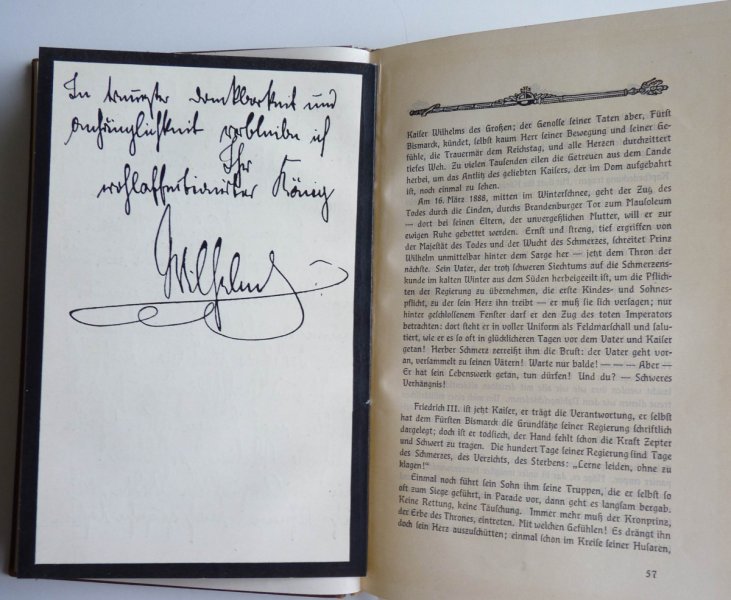 In treuester Dankbarkeit und
Anhänglichkeit verbleibe ich
Ihr
wohlaffectionirter König
Wilhelm
Kaiser Wilhelms des Großen; der Genosse seiner Taten aber, Fürst
Bismarck, kündet, selbst kaum Herr seiner Bewegung und seiner Ge-
fühle, die Trauermär dem Reichstag, und alle Herzen durchzittert
tiefes Weh. Zu vielen Tausenden eilen die Getreuen aus dem Lande
herbei, um das Antlitz des geliebten Kaisers, der im Dom aufgebahrt
ist, noch einmal zu sehen.
Am 16. März 1888, mitten im Winterschnee, geht der Zug des
Todes durch die Linden, durchs Brandenburger Tor zum Mausoleum
— dort bei seinen Eltern, der unvergeßlichen Mutter, will er zur
ewigen Ruhe gebettet werden. Ernst und streng, tief ergriffen von
der Majestät des Todes und der Wucht des Schmerzes, schreitet Prinz
Wilhelm unmittelbar hinter dem Sarge her — jetzt dem Thron der
nächste. Sein Vater, der trotz schweren Siechtums auf die Schmerzens-
kunde im kalten Winter aus dem Süden herbeigeeilt ist, um die Pflich-
ten der Regierung zu übernehmen, die erste Kindes- und Sohnes-
pflicht, zu der sein Herz ihn treibt — er muß sie sich versagen; nur
hinter geschlossenem Fenster darf er den Zug des toten Imperators
betrachten: dort steht er in voller Uniform als Feldmarschall und salu-
tiert, wie er es so oft in glücklicheren Tagen vor dem Vater und Kaiser
getan! Herber Schmerz zerreißt ihm die Brust: der Vater geht vor-
an, versammelt zu seinen Vätern! Warte nur balde! — — — Aber —
Er hat sein Lebenswerk getan, tun dürfen! Und du? — Schweres
Verhängnis!
Friedrich III. ist jetzt Kaiser, er trägt die Verantwortung, er selbst
hat dem Fürsten Bismarck die Grundsätze seiner Regierung schriftlich
dargelegt; doch ist er todsiech, der Hand fehlt schon die Kraft Zepter
und Schwert zu tragen. Die hundert Tage seiner Regierung sind Tage
des Schmerzes, des Verzichts, des Sterbens: „Lerne leiden, ohne zu
klagen!“
Einmal noch führt sein Sohn ihm seine Truppen, die er selbst so
oft zum Siege geführt, in Parade vor, dann geht es langsam bergab.
Keine Rettung, keine Täuschung. Immer mehr muß der Kronprinz,
der Erbe des Thrones, eintreten. Mit welchen Gefühlen! Es drängt ihn
doch sein Herz auszuschütten; einmal schon im Kreise seiner Husaren,
57